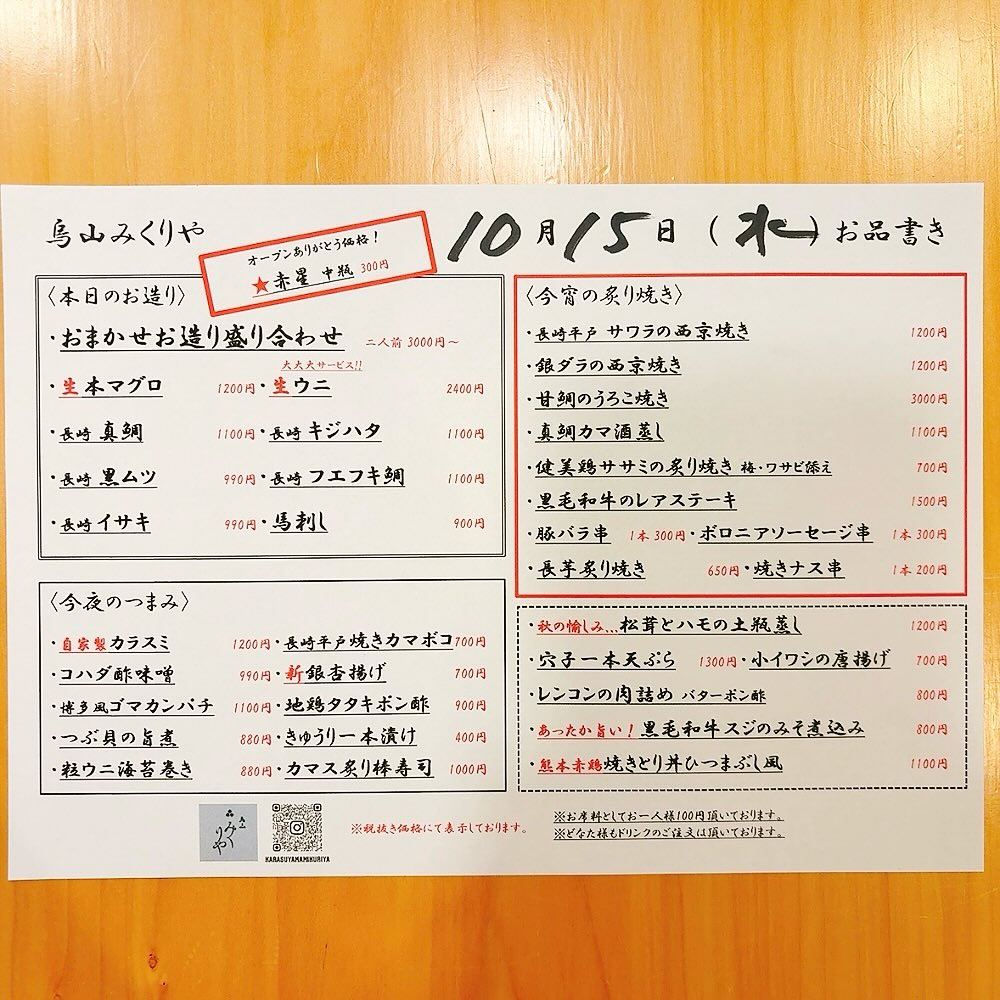 烏山みくりや
オープンありがとう価格！
★赤星 中瓶 300円
10月15日（水）お品書き
〈本日のお造り〉
・おまかせお造り盛り合わせ 二人前 3000円〜
大大大サービス!!
・生本マグロ 1200円・生ウニ 2400円
・長崎 真鯛 1100円・長崎 キジハタ 1100円
・長崎 黒ムツ 990円・長崎 フエフキ鯛 1100円
・長崎 イサキ 990円・馬刺し 900円
〈今夜のつまみ〉
・自家製カラスミ 1200円・長崎平戸焼きカマボコ700円
・コハダ酢味噌 990円・新銀杏揚げ 700円
・博多風ゴマカンパチ 1100円・地鶏タタキポン酢 900円
・つぶ貝の旨煮 880円・きゅうり一本漬け 400円
・粒ウニ海苔巻き 880円・カマス炙り棒寿司 1000円
〈今宵の炙り焼き〉
・長崎平戸 サワラの西京焼き 1200円
・銀ダラの西京焼き 1200円
・甘鯛のうろこ焼き 3000円
・真鯛カマ酒蒸し 1100円
・健美鶏ササミの炙り焼き 梅・ワサビ添え 700円
・黒毛和牛のレアステーキ 1500円
・豚バラ串 1本 300円・ボロニアソーセージ串 1本 300円
・長芋炙り焼き 650円・焼きナス串 1本 200円
・秋の愉しみ...松茸とハモの土瓶蒸し 1200円
・穴子一本天ぷら 1300円・小イワシの唐揚げ 700円
・レンコンの肉詰め バターポン酢 800円
・あったか旨い！黒毛和牛スジのみそ煮込み 800円
・熊本赤鶏焼きとり丼ひつまぶし風 1100円
みくりや
KARASUYAMAMIKURIYA
※税抜き価格にて表示しております。
※お席料としてお一人様100円頂いております。
※どなた様もドリンクのご注文は頂いております。